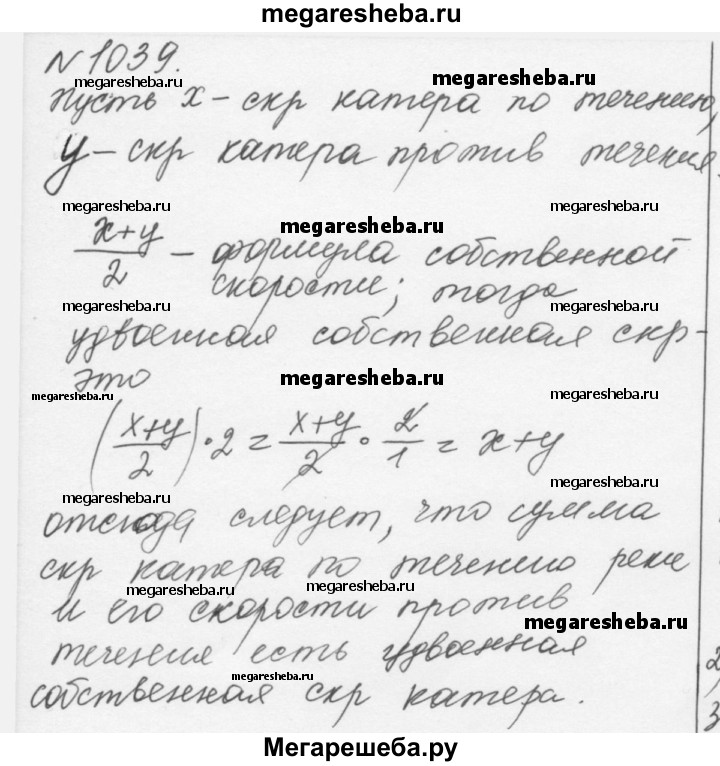 megaresheba.ru
N1039.
megaresheba.ru megaresheba.ru
Пусть x – скр катера по течению,
y – скр катера против течения.
megaresheba.ru megaresheba.ru megaresheba.ru
x+y/2 – формула собственной
скорости; тогда
megaresheba.ru megaresheba.ru
удвоенная собственная скр–
это
megaresheba.ru megaresheba.ru megaresheba.ru
(x+y/2)·2 = x+y/2 · 2/1 = x+y
megaresheba.ru megaresheba.ru
отсюда следует, что сумма
скр катера по течению реки
megaresheba.ru megaresheba.ru
и его скорости против
megaresheba.ru
течения есть удвоенная
megaresheba.ru
собственная скр катера.
2
3
Мегарешеба.ру